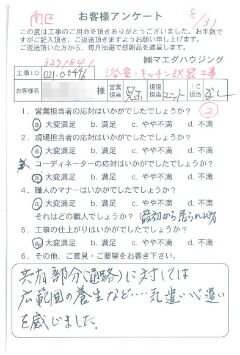 南区
8/31
お客様アンケート
この度は工事のご用命を頂きありがとうございました。お手数で
すがご記入頂き、ご返送頂きますようお願い申し上げます。
ご返送頂いた方から、毎月抽選で感謝品を進呈します。
㈱マエダハウジング
工事ID
浴室・キッチン改装工事
様
営業担当
現場担当
工事担当
1. 営業担当者の応対はいかがでしたでしょうか?
a 大変満足 b. 満足 c. やや不満 d. 不満
a 大変満足 b. 満足 c. やや不満 d. 不満
3. コーディネーターの応対はいかがでしたでしょうか?
a 大変満足 b. 満足 c. やや不満 d. 不満
4. 職人のマナーはいかがでしたでしょうか?
a 大変満足 b. 満足 c. やや不満 d. 不満
それはどの職人でしょうか?
5. 工事の仕上がりはいかがでしたでしょうか?
a 大変満足 b. 満足 c. やや不満 d. 不満
6. その他、ご意見・ご要望をお書き下さい。
共有部分(通路)に対しては
広範囲の養生など…気遣い心遣い
を感じました。